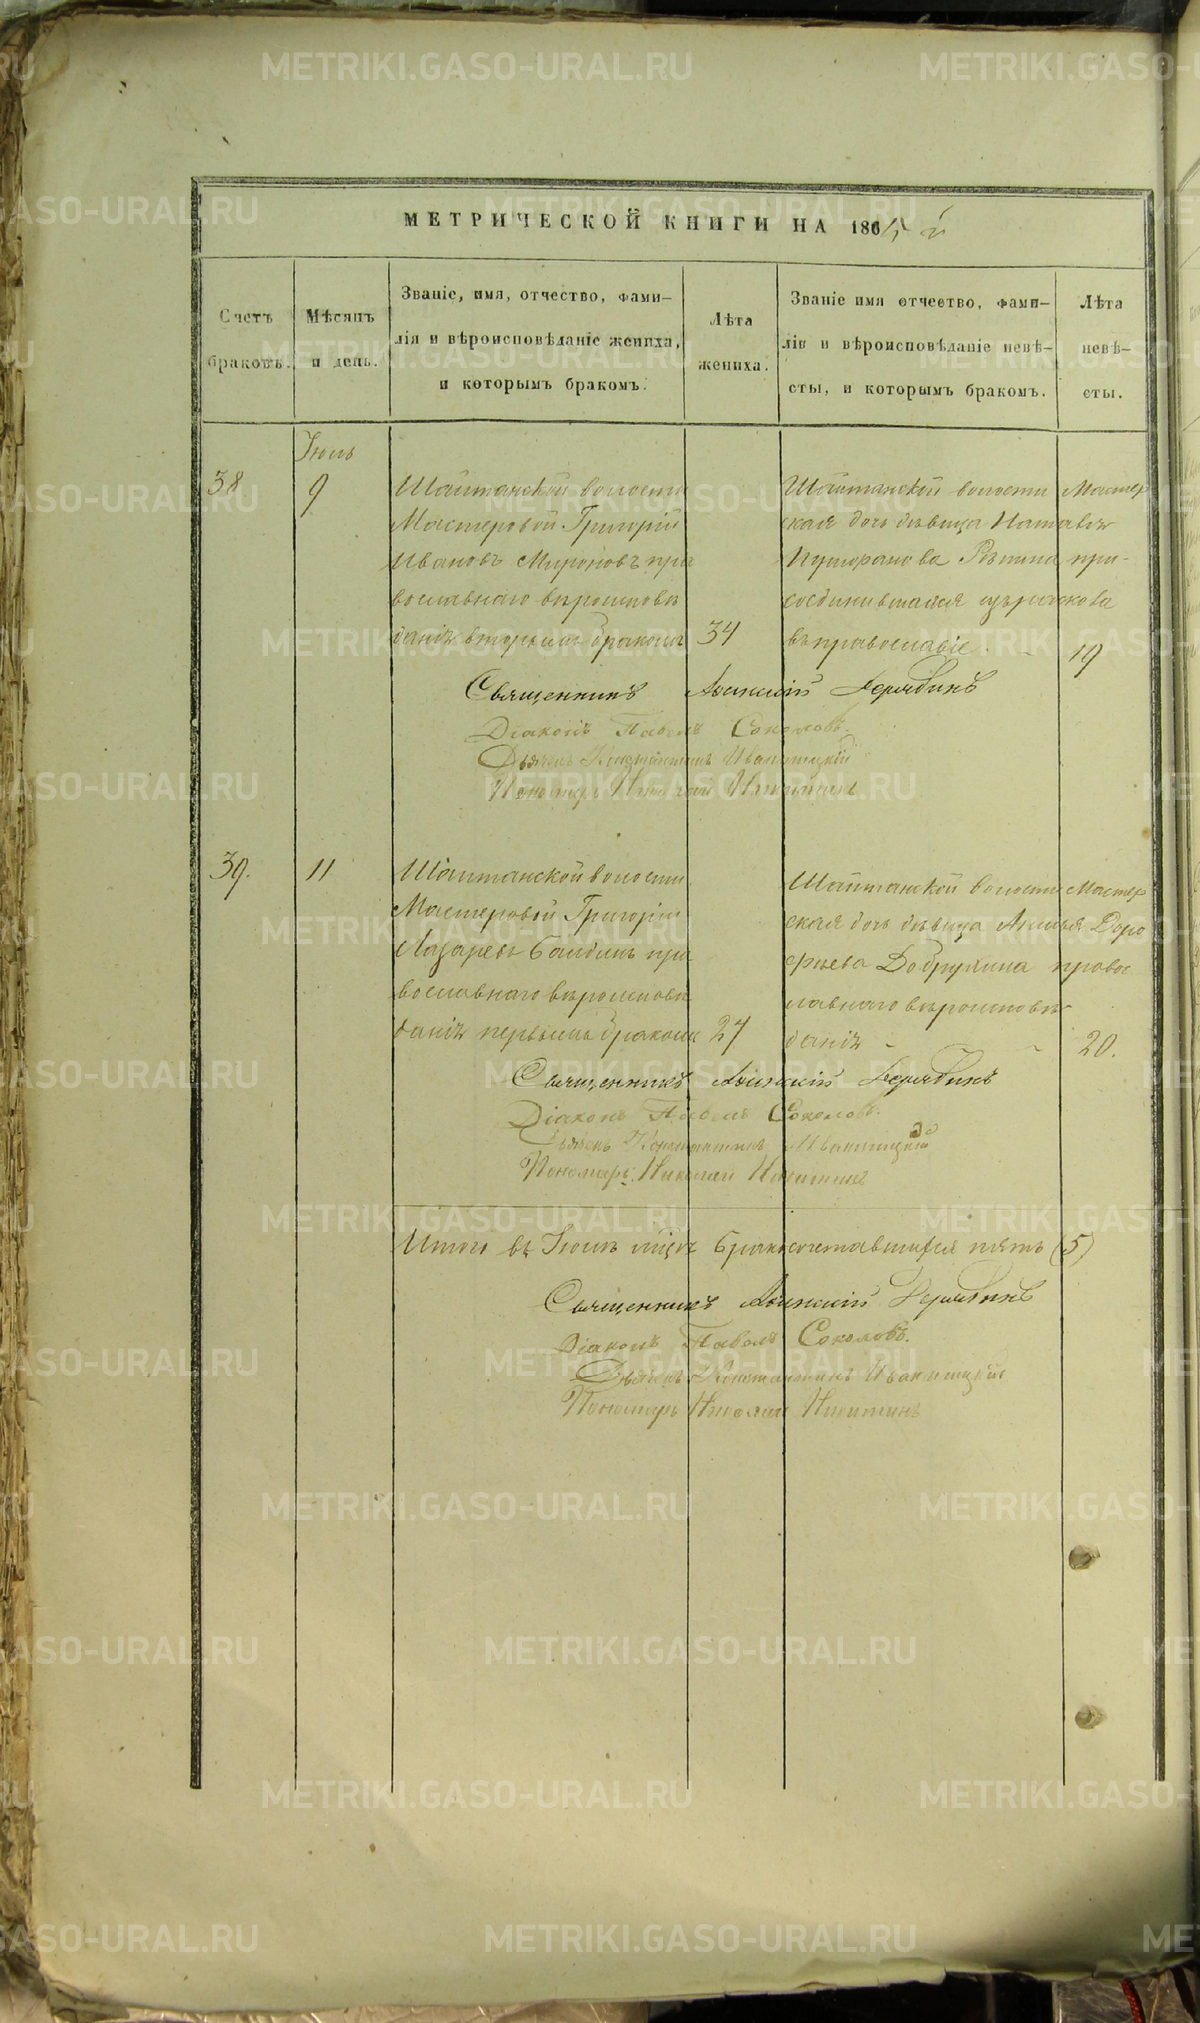 МЕТРИЧЕСКОЙ КНИГИ НА 1865 й
Счетъ
браковъ.
Мѣсяцъ
и день.
Званіе, имя, отчество, фами-
лія и вѣроисповѣданіе жениха,
и которымъ бракомъ.
Лѣта
жениха.
Званіе имя отчество, фами-
лія и вѣроисповѣданіе невѣ-
сты, и которымъ бракомъ.
Лѣта
невѣ-
сты.
Іюль
38
9
Шайтанской волости
Мастеровой Григорій
Ивановъ Мироновъ пра
вославнаго вѣроисповѣ
данія вторымъ бракомъ
34
Шайтанской волости Мастер
ская дочь дѣвица
при-
соединившаяся изъ раскола
въ православіе
19
Священникъ
Діаконъ Павелъ Соколовъ.
Дьячекъ Константинъ Иваницкій
Пономарь Николай Никитинъ
39.
11
Шайтанской волости
Мастеровой Григорій
Лазаревъ пра
вославнаго вѣроисповѣ
данія первымъ бракомъ
27
Шайтанской волости Мастер
ская дочь дѣвица Доро
феева Добрынина право
славнаго вѣроисповѣ
данія
20.
Священникъ
Діаконъ Павелъ Соколовъ.
Дьячекъ Константинъ Иваницкій
Пономарь Николай Никитинъ
Итого въ Іюлѣ мцѣ бракосочетавшихся пять (5)
Священникъ
Діаконъ Павелъ Соколовъ.
Дьячекъ Константинъ Иваницкій
Пономарь Николай Никитинъ
METRIKI.GASO-URAL.RU